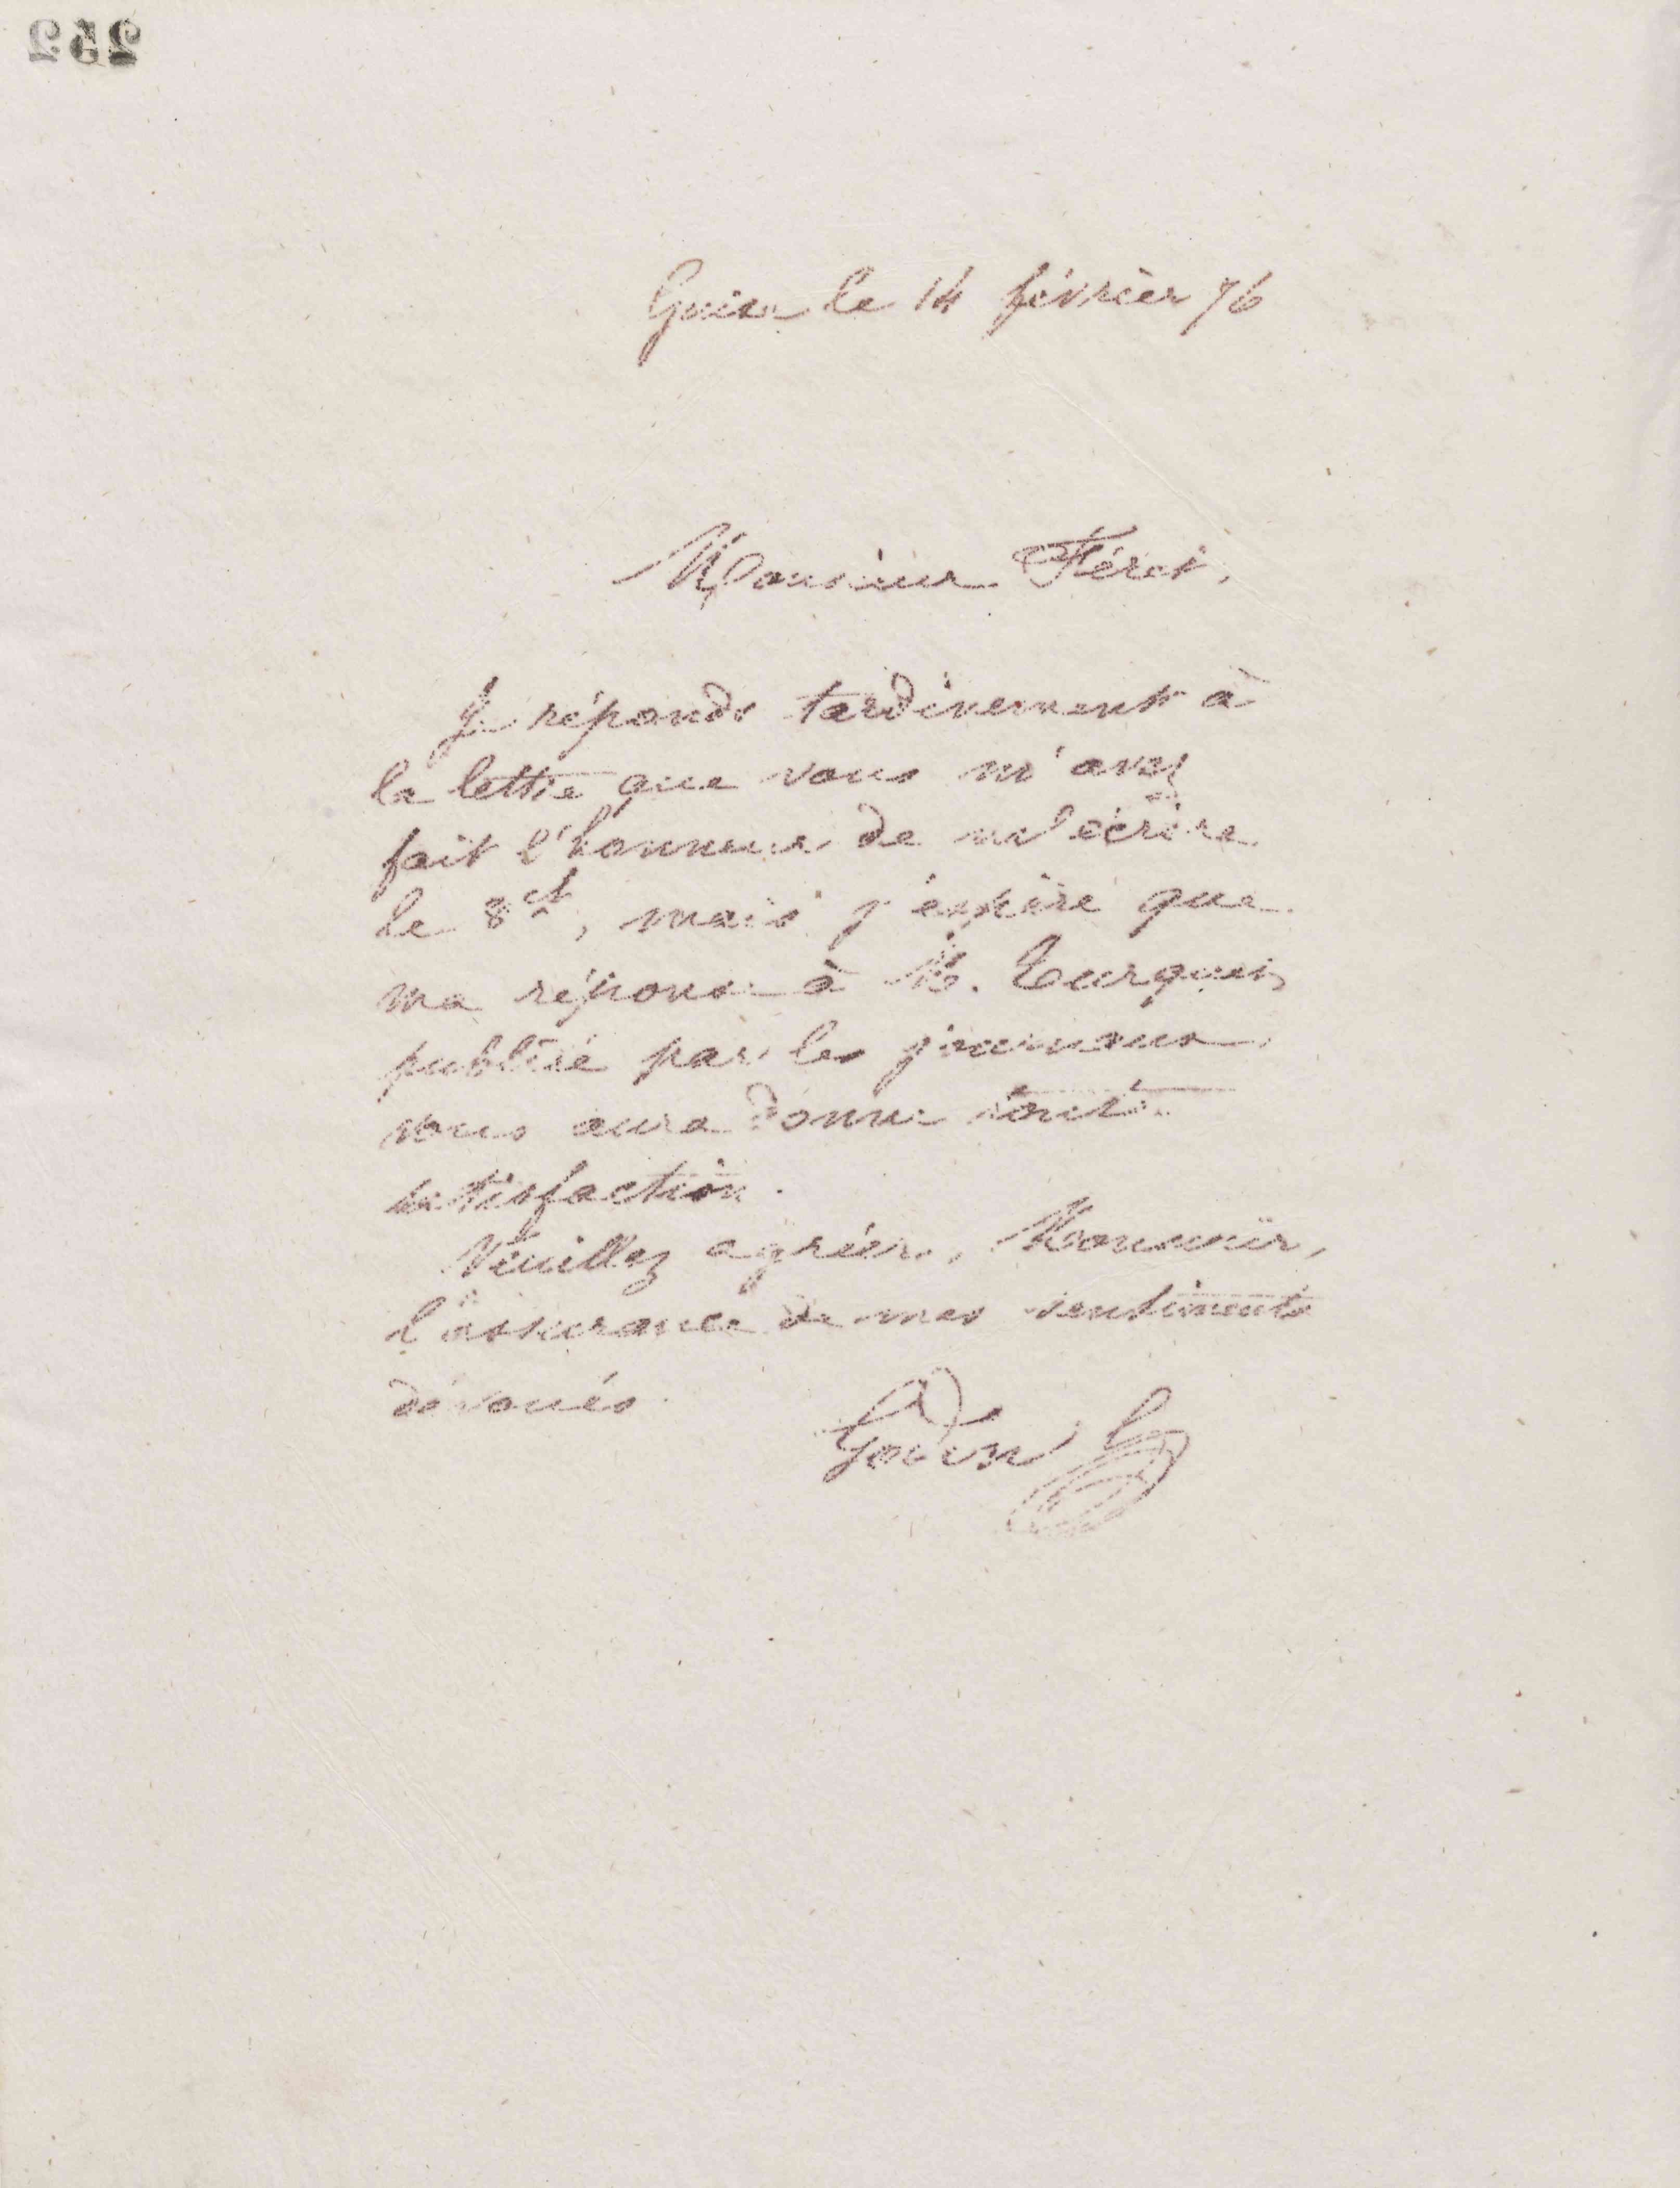 252
Guise le 14 février 76
Monsieur Féret,
Je réponds tardivement à
la lettre que vous m'avez
fait l'honneur de m'écrire
le 8 ct, mais j'espère que
ma réponse à M. Turquet
publiée par les journaux
vous aura donné toute
satisfaction.
Veuillez agréer, Monsieur,
l'assurance de mes sentiments
dévoués.
Godin